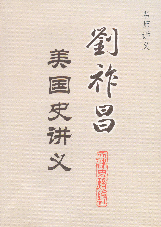 讲义
劉祚昌
美国史讲义